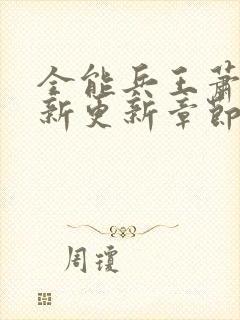 全能兵王萧
新更新章节
周琼